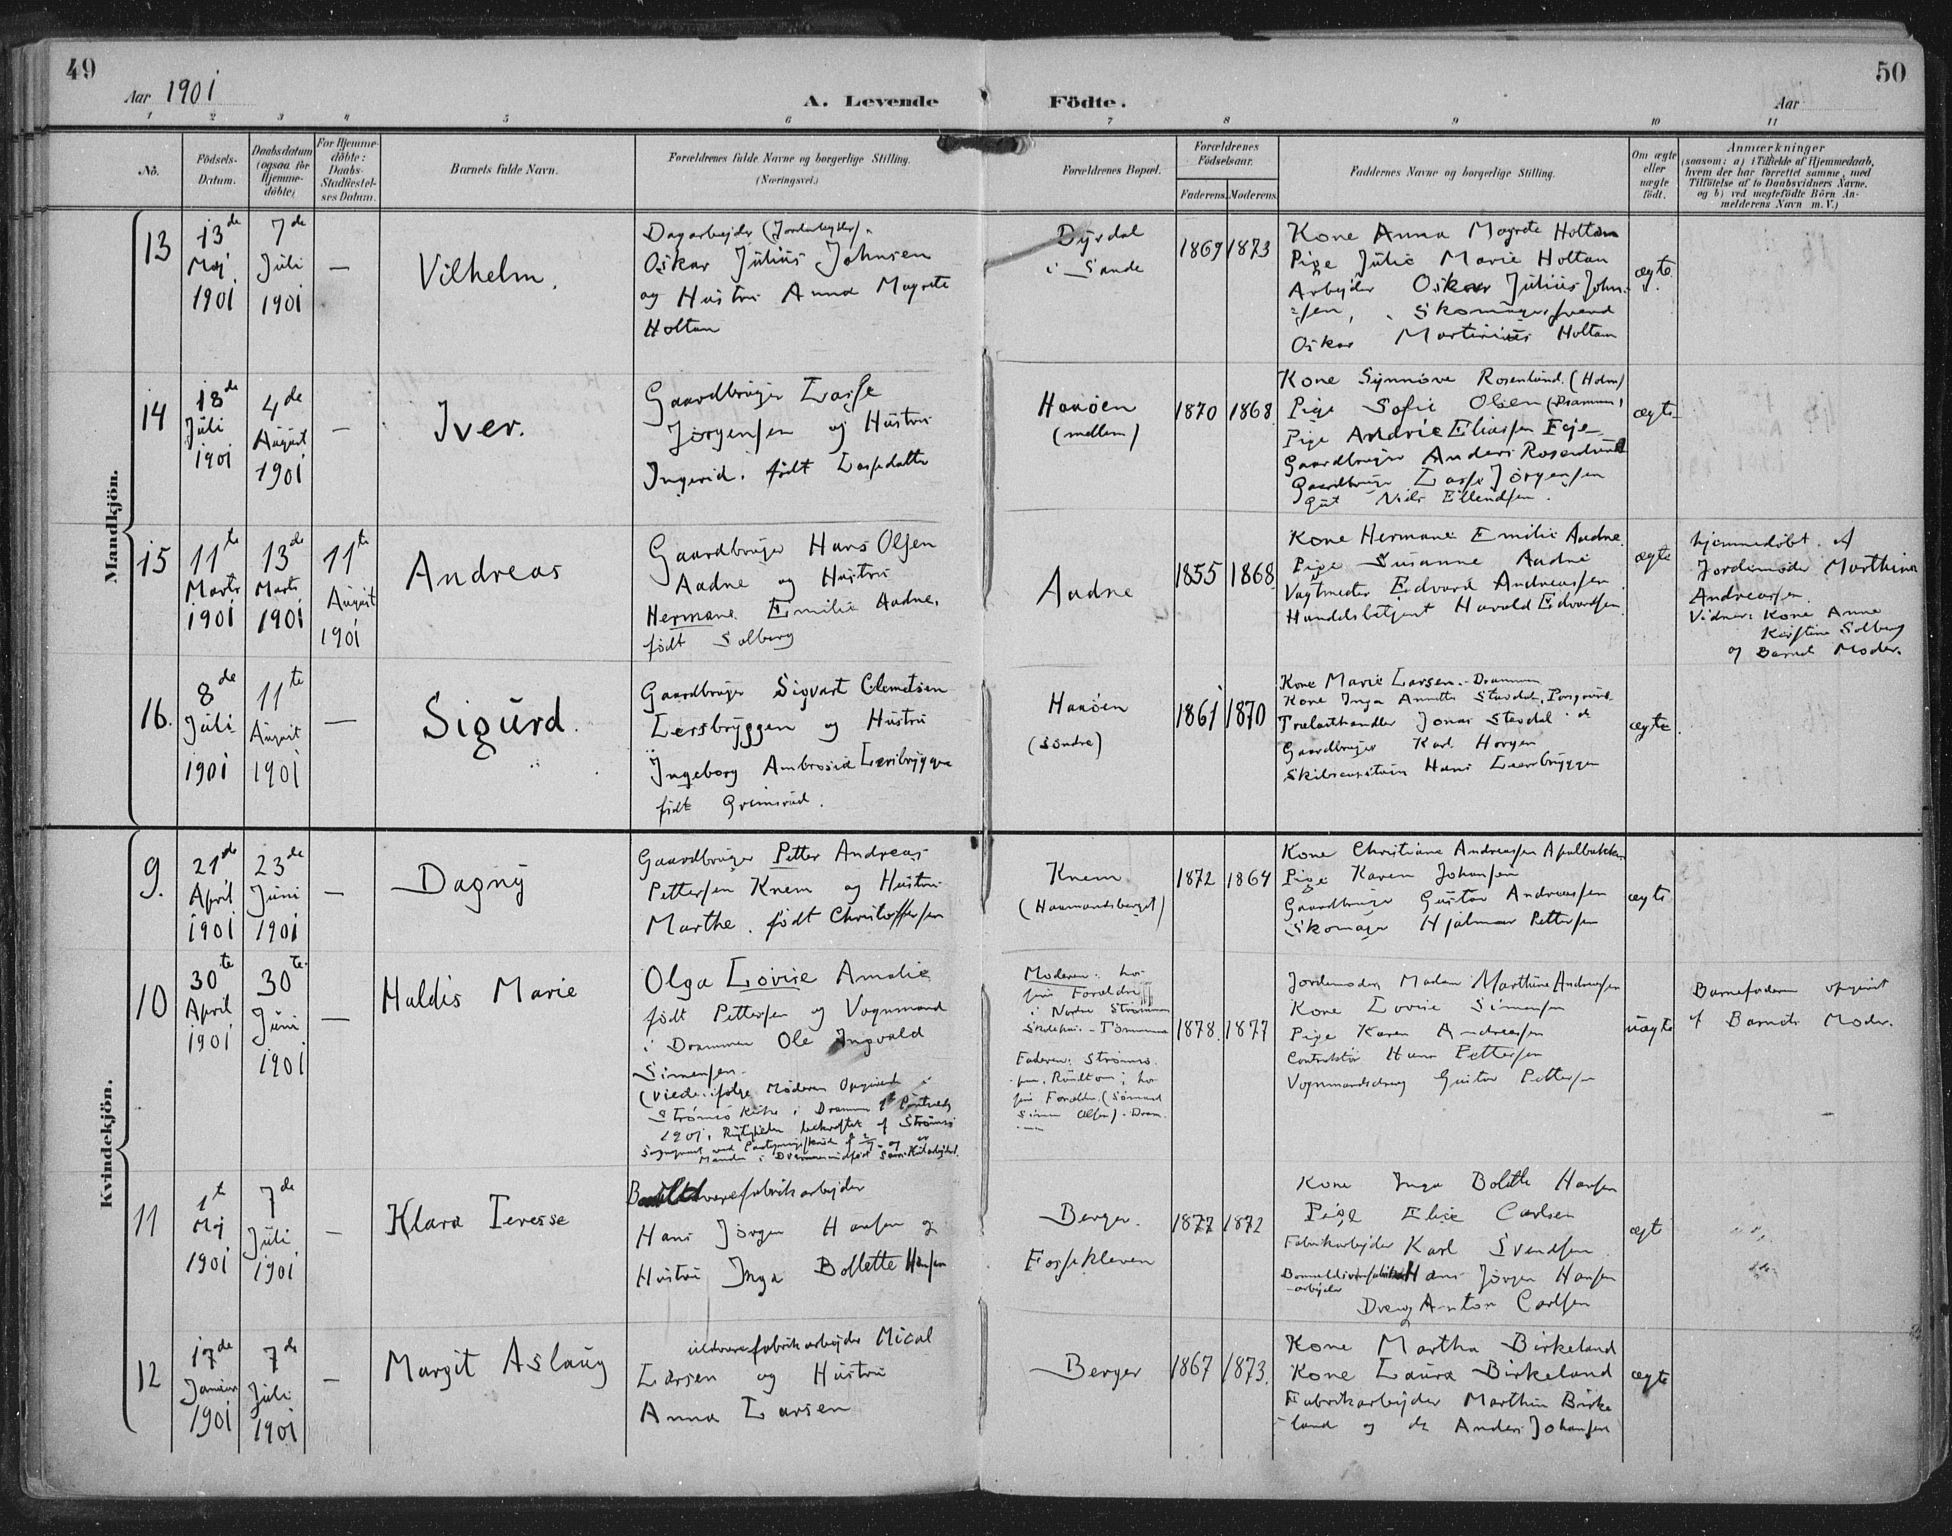 49
50
Aar 1901
A. Levende
Födte.
Aar
1 2 3 4 5 6 7 8 9 10 11
No.
Födsels-
Datum.
Daabsdatum
(ogsaa for
Hjemme-
döbte)
For Hjemme-
döbte:
Daabs-
Stadfæstel-
ses Datum.
Barnets fulde Navn.
Forældrenes fulde Navne og borgerlige Stilling.
(Næringsvei.)
Forældrenes Bopæl.
Forældrenes
Födselsaar.
Faderens. Moderens.
Faddernes Navne og borgerlige Stilling.
Om ægte
eller
uægte
födt.
Anmærkninger
(saasom: a) i Tilfælde af Hjemmedaab,
hvem der har forrettet samme, med
Tilföielse af to Daabsvidners Navne.
og b) ved uægtefödte Börn An-
melderens Navn m. V.)
Mandkjön.
13
13de
Maj
1901
7de
Juli
1901
—
Vilhelm.
Dagarbejder
Oskar Julius Johnsen
og Hustru Anna Magrete
Holtan
Dyrdal
i Sande
1869 1873
Kone Anna Magrete Holtan
Pige Julie Marie Holtan
Arbejder Oskar Julius John-
sen, Skomagersvend
Oskar Martinius Holtan
ægte.
14
18de
Juli
1901
4de
August
1901
—
Iver.
Gaardbruger Lasse
Jørgensen og Hustru
Ingerid. født Lassedatter
Haaøen
(mellem)
1870 1868
Kone Synnøve Rosenlund. (Holm)
Pige Sofie Olsen (Drammen)
Pige Eliassen Eje
Gaardbruger Anders Rosenlund
Gaardbruger Lasse Jörgensen
Gut Niels Ellendsen.
ægte
15
11te
Marts
1901
13de
Marts
1901
11te
August
1901
Andreas
Gaardbruger Hans Olsen
Aadne og Hustru
Hermane Emilie Aadne.
født Solberg
Aadne
1855 1868
Kone Hermane Emilie Aadne
Pige Susanne Aadne
Vagtmester Edvard Andreassen
Handelsbetjent Harald Edvardsen.
ægte
hjemmedøbt af
Jordemoder Marthine
Andreassen.
Vidner: Kone Anne
Kirstine Solberg
og Barnets Moder.
16.
8de
Juli
1901
11te
August
1901
—
Sigurd.
Gaardbruger Sigvart Clemetsen
Lersbryggen og Hustru
Ingeborg Ambrosia Lersbryggen
født Grimsrud.
Haaøen
(søndre)
1861 1870
Kone Marie Larsen. Drammen
Kone Inga Annette Stavdal, Porsgrund
Trælasthandler Jonas Stavdal do
Gaardbruger Karl Horgen
Skibscaptain Hans Lersbryggen
ægte.
Kvindekjön.
9.
21de
April
1901
23de
Juni
1901
—
Dagny
Gaardbruger Petter Andreas
Pettersen Knem og Hustru
Marthe. født Christoffersen
Knem
(Haamandsberget)
1872 1864
Kone Christiane Andreassen Apalbakken
Pige Karen Johansen
Gaardbruger Gustav Andreassen
Skomager Hjalmar Pettersen
ægte
10
30te
April
1901
30te
Juni
1901
—
Haldis Marie
Olga Lovise Amalie
født Pettersen og Vognmand
i Drammen Ole Ingvald
Simensen.
(viede ifølge Moderen Opgivende i
Strømsø Kirke i Drammen
1901. bekræftet af Strømsø
Moderen: hos
sine Forældre
i Nordre Strømmen
Faderen: Strømsø.
hos
sine Forældre. (Sømand
Simen Olsen). Dram-
men
1878. 1877
Jordemoder, Madam Marthine Andreassen
Kone Lovise Simensen
Pige Karen Andreassen
Hans Pettersen
Vognmandsdreng Gustav Pettersen
uægte
Barnefaderen opgivet
af Barnets Moder.
11
1te
Maj
1901
7de
Juli
1901
—
Klara Teresse
fabrikarbejder
Hans Jörgen Hansen og
Hustru Inga Bollette Hansen
Berger.
Fossekleven
1877 1872
Kone Inga Bolette Hansen
Pige Elise Carlsen
Fabrikarbejder Karl Svendsen
Hans Jörgen Hansen
-arbejder
Dreng Anton Carlsen
ægte
12
17de
Januar
1901
7de
Juli
1901
—
Margit Aslaug
uldvarefabrikarbejder Mical
Larsen og Hustru
Anna Larsen
Berger
1867 1873.
Kone Martha Birkeland
Kone Laura Birkeland
Fabrikarbejder Marthin Birke
land og do Anders Johansen
ægte